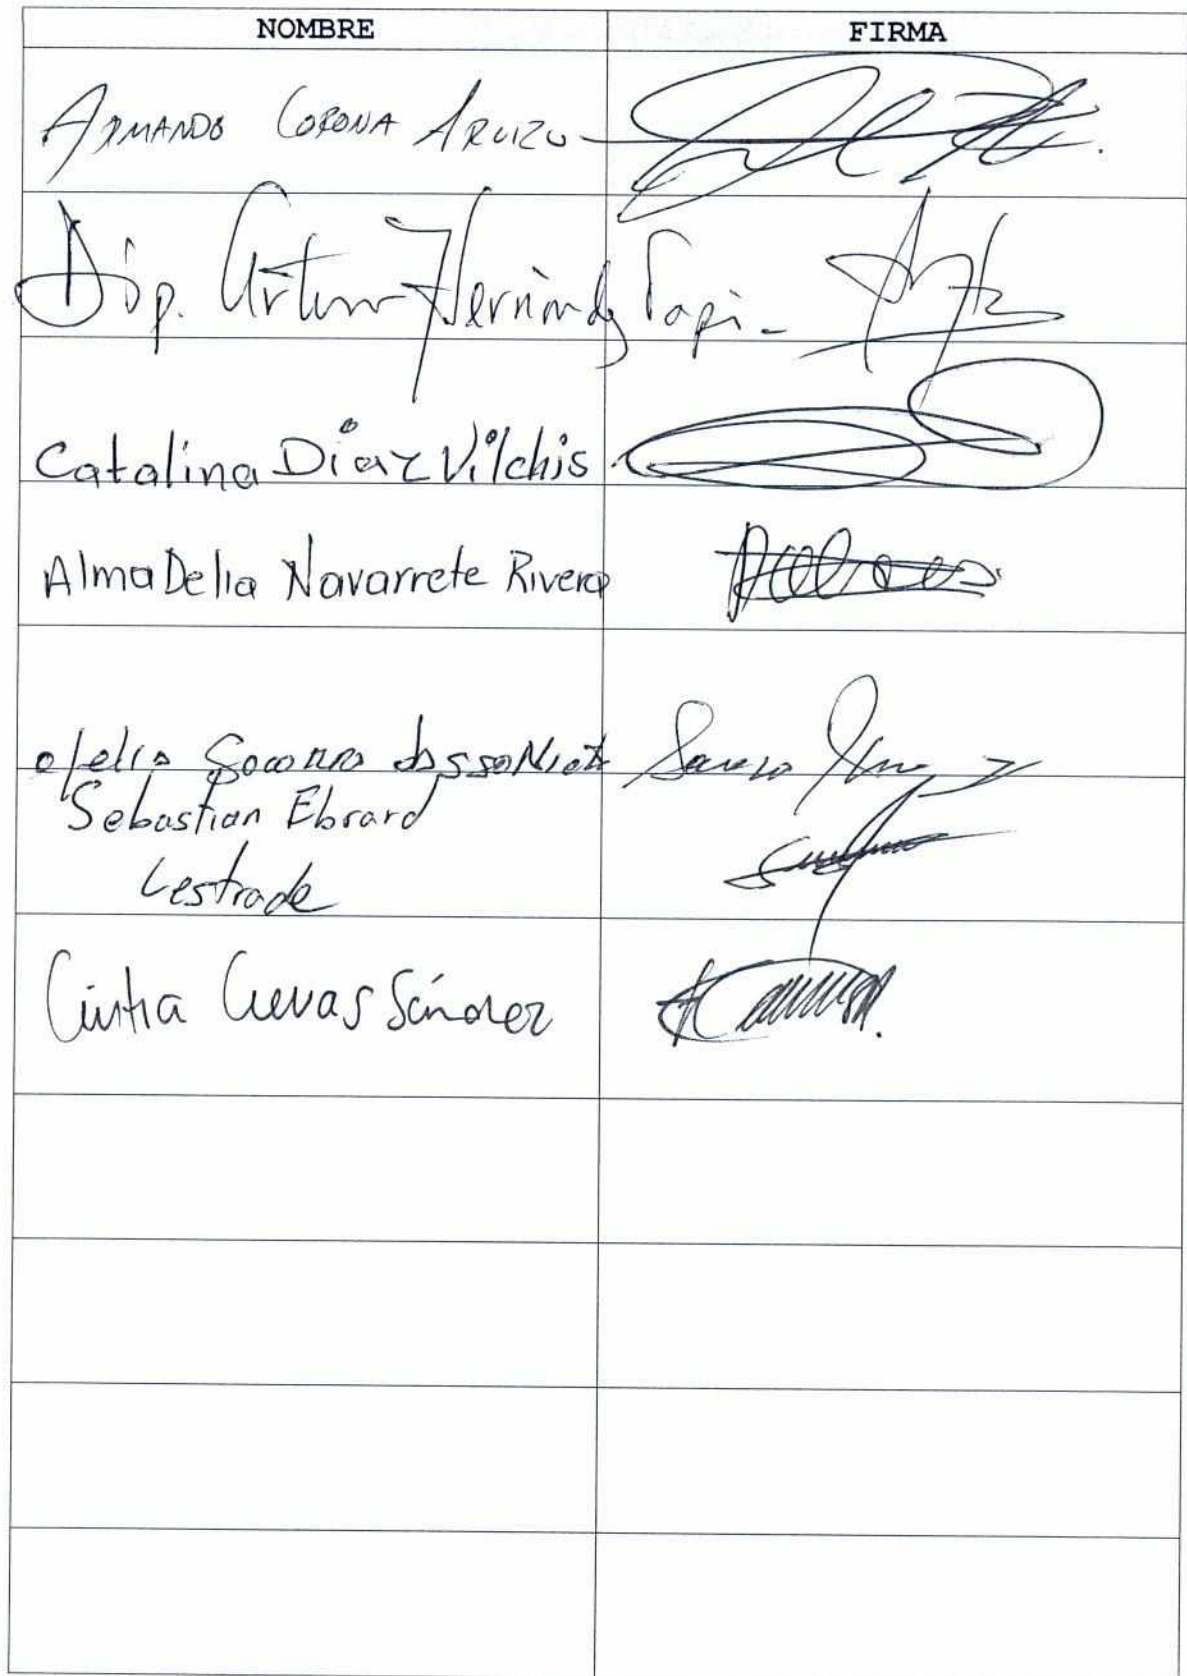 NOMBRE FIRMA
ARMANDO CORONA ARVIZU
Dip. Arturo Hernández Tapi-
Catalina Díaz Vilchis
Alma Delia Navarrete Rivera
ofelia Socorro JassoNieto
Sebastian Ebrard
Lestrade
Cintia Cuevas Sánchez